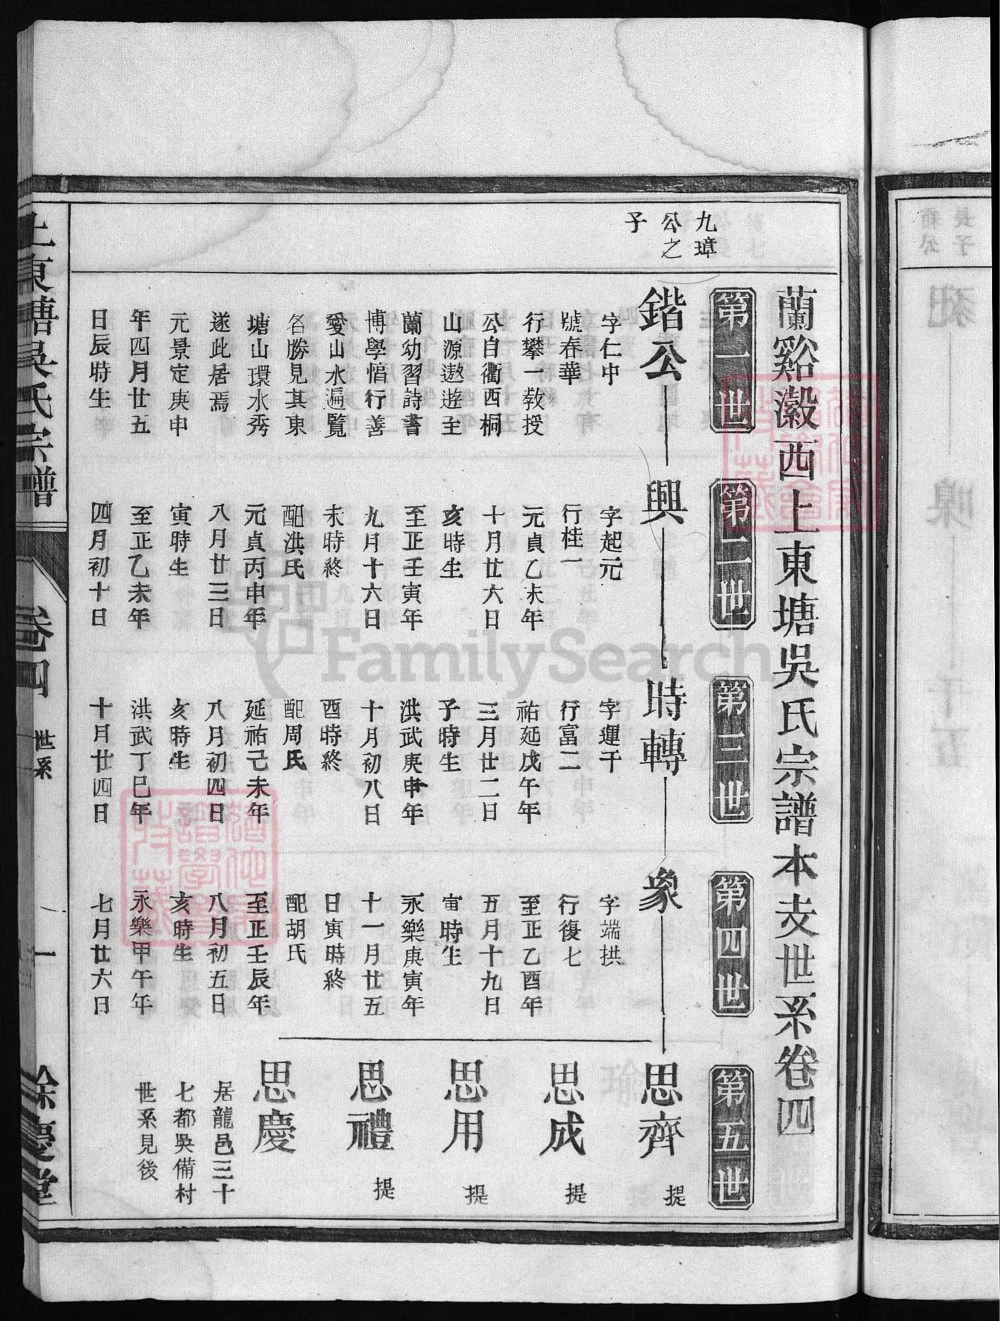 蘭谿瀫西上東塘吳氏宗譜本支世系卷四
第一世
第二世
第三世
第四世
第五世
九璋
公之
子
鍇公
興
時轉
象
思齊
提
字仁中
號春華
行攀一敎授
公自衢西桐
山源遨遊至
蘭幼習詩書
博學愊行善
愛山水遍覽
名勝見其東
塘山環水秀
遂此居焉
元景定庚申
年四月廿五
日辰時生
字起元
行桂一
元貞乙未年
十月廿六日
亥時生
至正壬寅年
九月十六日
未時終
配洪氏
元貞丙申年
八月廿三日
寅時生
至正乙未年
四月初十日
字運干
行富二
祐延戊午年
三月廿二日
子時生
洪武庚申年
十月初八日
酉時終
配周氏
延祐己未年
八月初四日
亥時生
洪武丁巳年
十月廿四日
字端拱
行復七
至正乙酉年
五月十九日
寅時生
永樂庚寅年
十一月廿五
日寅時終
配胡氏
至正壬辰年
八月初五日
亥時生
永樂甲午年
七月廿六日
思成
提
思用
提
思禮
提
思慶
居龍邑三十
七都吳備村
世系見後
上東塘吳氏宗譜
卷四
世系
一
餘慶堂
FamilySearch